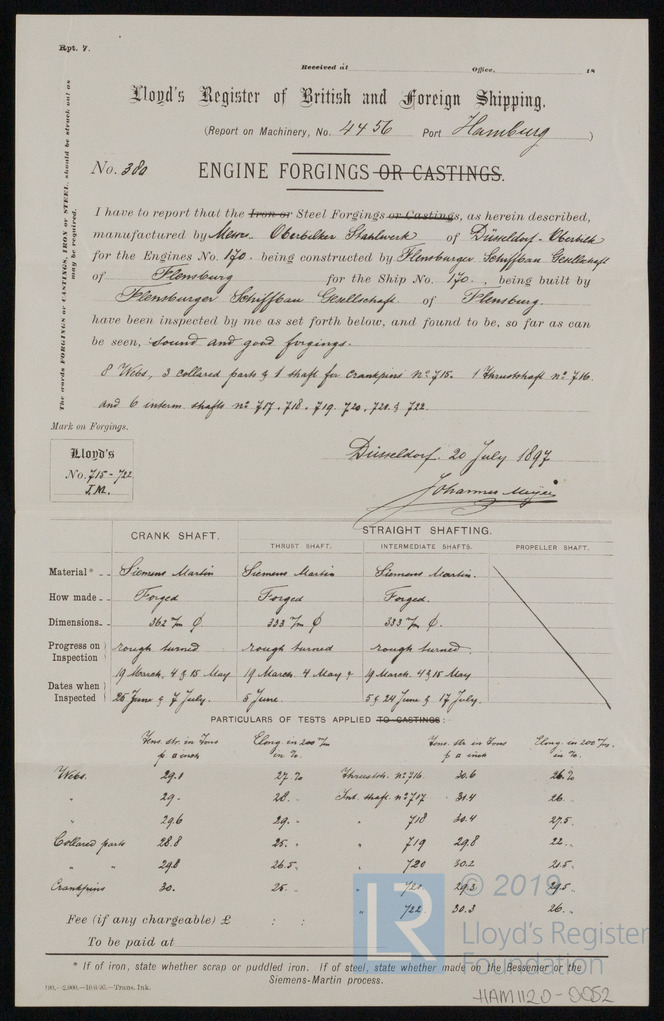 Rpt. 7.
Received at Office, 18
Lloyd's Register of British and Foreign Shipping.
(Report on Machinery, No. 4456 Port Hamburg)
No. 380 ENGINE FORGINGS OR CASTINGS.
The words FORGINGS or CASTINGS, IRON or STEEL, should be struck out as may be required.
I have to report that the Iron or Steel Forgings or Castings, as herein described,
manufactured by Messrs. Oberbilker Stahlwerk of Düsseldorf-Oberbilk
for the Engines No. 170. being constructed by Flensburger Schiffbau Gesellschaft
of Flensburg for the Ship No. 170., being built by
Flensburger Schiffbau Gesellschaft of Flensburg.
have been inspected by me as set forth below, and found to be, so far as can
be seen, sound and good forgings.
8 Webs, 3 collared parts & 1 shaft for crankpins No. 715. 1 Thrustshaft No. 716
and 6 interm. shafts No. 717, 718, 719, 720, 721 & 722.
Mark on Forgings.
Lloyd's
No. 715-722
J.M.
Düsseldorf. 20 July 1897
Johannes Meyer
CRANK SHAFT. STRAIGHT SHAFTING.
THRUST SHAFT. INTERMEDIATE SHAFTS. PROPELLER SHAFT.
Material* Siemens Martin Siemens Martin Siemens Martin.
How made Forged Forged Forged.
Dimensions 362 m/m ϕ 333 m/m ϕ 333 m/m ϕ.
Progress on Inspection rough turned rough turned rough turned.
Dates when Inspected 19 March, 4 & 15 May 19 March, 4 May & 19 March 4 & 15 May
25 June & 7 July. 5 June. 5 & 24 June & 17 July.
PARTICULARS OF TESTS APPLIED TO CASTINGS:
Tens. str. in Tons Elong. in 200 m/m Tens. str. in Tons Elong. in 200 m/m.
p. □ inch in %. p. □ inch in %.
Webs. 29.1 27.% Thrustsh. No. 716. 30.6 26.%
" 29.- 28.- Int. shaft. No. 717 31.4 26.
" 29.6 29.- " 718 30.4 27.5.
Collared parts 28.8 25. " 719 29.8 22.
" " 29.8 26.5. " 720 30.2
Crankpins 30. 25. " 721 29.3 29.5
" 722 30.3 26.
Fee (if any chargeable) £ : :
To be paid at
* If of iron, state whether scrap or puddled iron. If of steel, state whether made on the Bessemer or the
Siemens-Martin process.
Trans. Ink.
LR
© 2019
Lloyd's Register
Foundation
HAM1120-0052